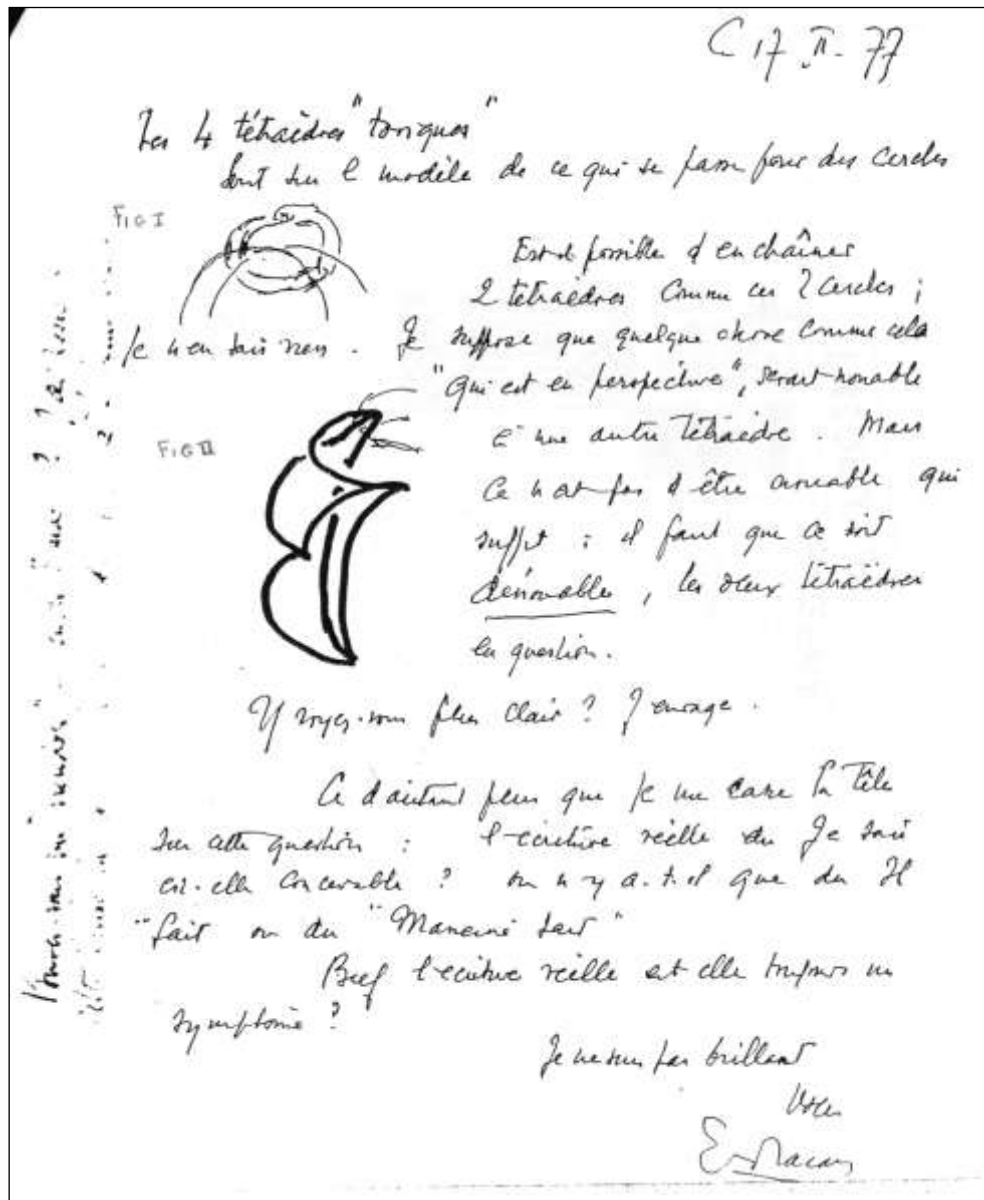 C 17 II. 77
Les 4 tétraèdres "toriques"
sont sur l modèle de ce qui se passe pour des cercles
FIG I
Est-il possible d enchaîner
2 tétraèdres comme ces 2 cercles ;
Je n en sais rien. Je suppose que quelque chose comme cela
"qui est en perspective", serait nouable
à une autre tétraèdre. Mais
FIG II
ce n est pas d être nouable qui
suffit : il faut que ce soit
dénouable, les deux tétraèdres
en question.
Y voyez-vous plus clair ? J enrage.
Ce d autant plus que je me casse la tête
sur cette question : l'écriture réelle du Je sais
est-elle concevable ? ou n y a-t-il que du Il
"sait ou du sait"
Bref l'écriture réelle est elle toujours un
symptôme ?
Je ne suis pas brillant
Votre
Lacan